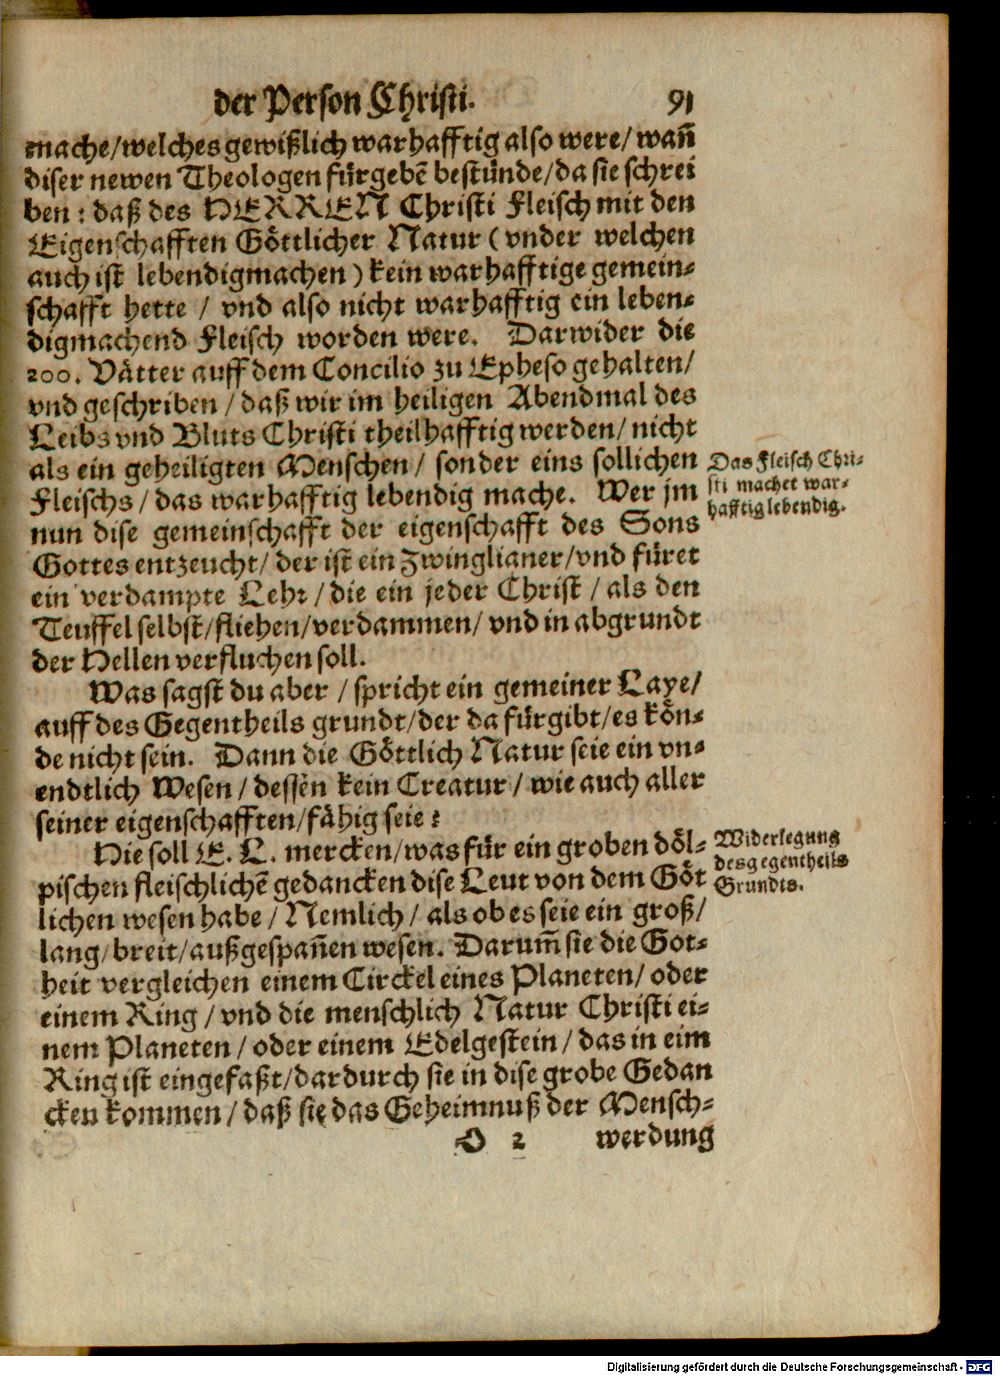 der Person Christi. 91
mache/welches gewißlich warhafftig also were/wañ
diser newen Theologen fürgebẽ bestünde/da sie schrei
ben: daß des HERREN Christi Fleisch mit den
Eigenschafften Göttlicher Natur (vnder welchen
auch ist lebendigmachen) kein warhafftige gemein-
schafft hette / vnd also nicht warhafftig ein leben-
digmachend Fleisch worden were. Darwider die
200. Vätter auff dem Concilio zu Epheso gehalten/
vnd geschriben / daß wir im heiligen Abendmal des
Leibs vnd Bluts Christi theilhafftig werden/ nicht
als ein geheiligten Menschen/ sonder eins sollichen
Fleischs/ das warhafftig lebendig mache. Wer jm
nun dise gemeinschafft der eigenschafft des Sons
Gottes entzeucht/ der ist ein Zwinglianer/vnd füret
ein verdampte Lehr/die ein jeder Christ / als den
Teuffel selbst/fliehen/verdammen/ vnd in abgrundt
der Hellen verfluchen soll.
Das Fleisch Chri-
sti machet war-
hafftig lebendig.
Was sagst du aber / spricht ein gemeiner Laye/
auff des Gegentheils grundt/der da fürgibt/es kön-
de nicht sein. Dann die Göttlich Natur seie ein vn-
endtlich Wesen / dessen kein Creatur / wie auch aller
seiner eigenschafften/fähig seie?
Hie soll E. L. mercken/was für ein groben döl-
pischen fleischlichẽ gedancken dise Leut von dem Göt
lichen wesen habe / Nemlich / als ob es seie ein groß/
lang/breit/außgespañen wesen. Darum̃ sie die Got-
heit vergleichen einem Circkel eines Planeten/ oder
einem Ring / vnd die menschlich Natur Christi ei-
nem Planeten / oder einem Edelgestein / das in eim
Ring ist eingefaßt/dardurch sie in dise grobe Gedan
cken kommen / daß sie das Geheimnuß der Mensch-
Widerlegung
des gegentheils
Grundts.
O 2 werdung
Digitalisierung gefördert durch die Deutsche Forschungsgemeinschaft - DFG